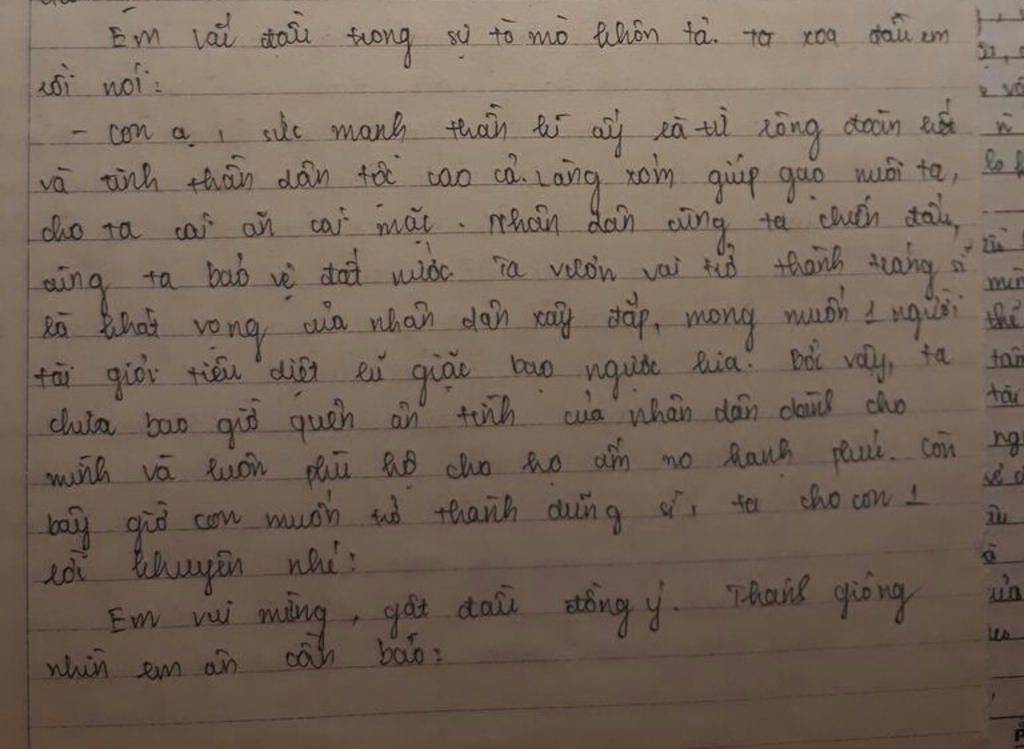 Em lắc đầu trong sự tò mò khôn tả. ta xoa đầu em
rồi nói:
- Con ạ, sức mạnh thần kì ấy là từ lòng đoàn kết
và tinh thần dân tộc cao cả. Làng xóm giúp gạo nuôi ta,
cho ta cái ăn cái mặc. Nhân dân cùng ta chiến đấu,
cùng ta bảo vệ đất nước. Ta vươn vai trở thành tráng sĩ
là khát vọng của nhân dân xây đắp, mong muốn 1 người
tài giỏi tiêu diệt lũ giặc bạo ngược kia. Bởi vậy, ta
chưa bao giờ quên ân tình của nhân dân dành cho
mình và luôn phù hộ cho họ ấm no hạnh phúc. Còn
bây giờ con muốn trở thành dũng sĩ, ta cho con 1
lời khuyên nhé:
Em vui mừng, gật đầu đồng ý. Thánh gióng
nhìn em ân cần bảo: